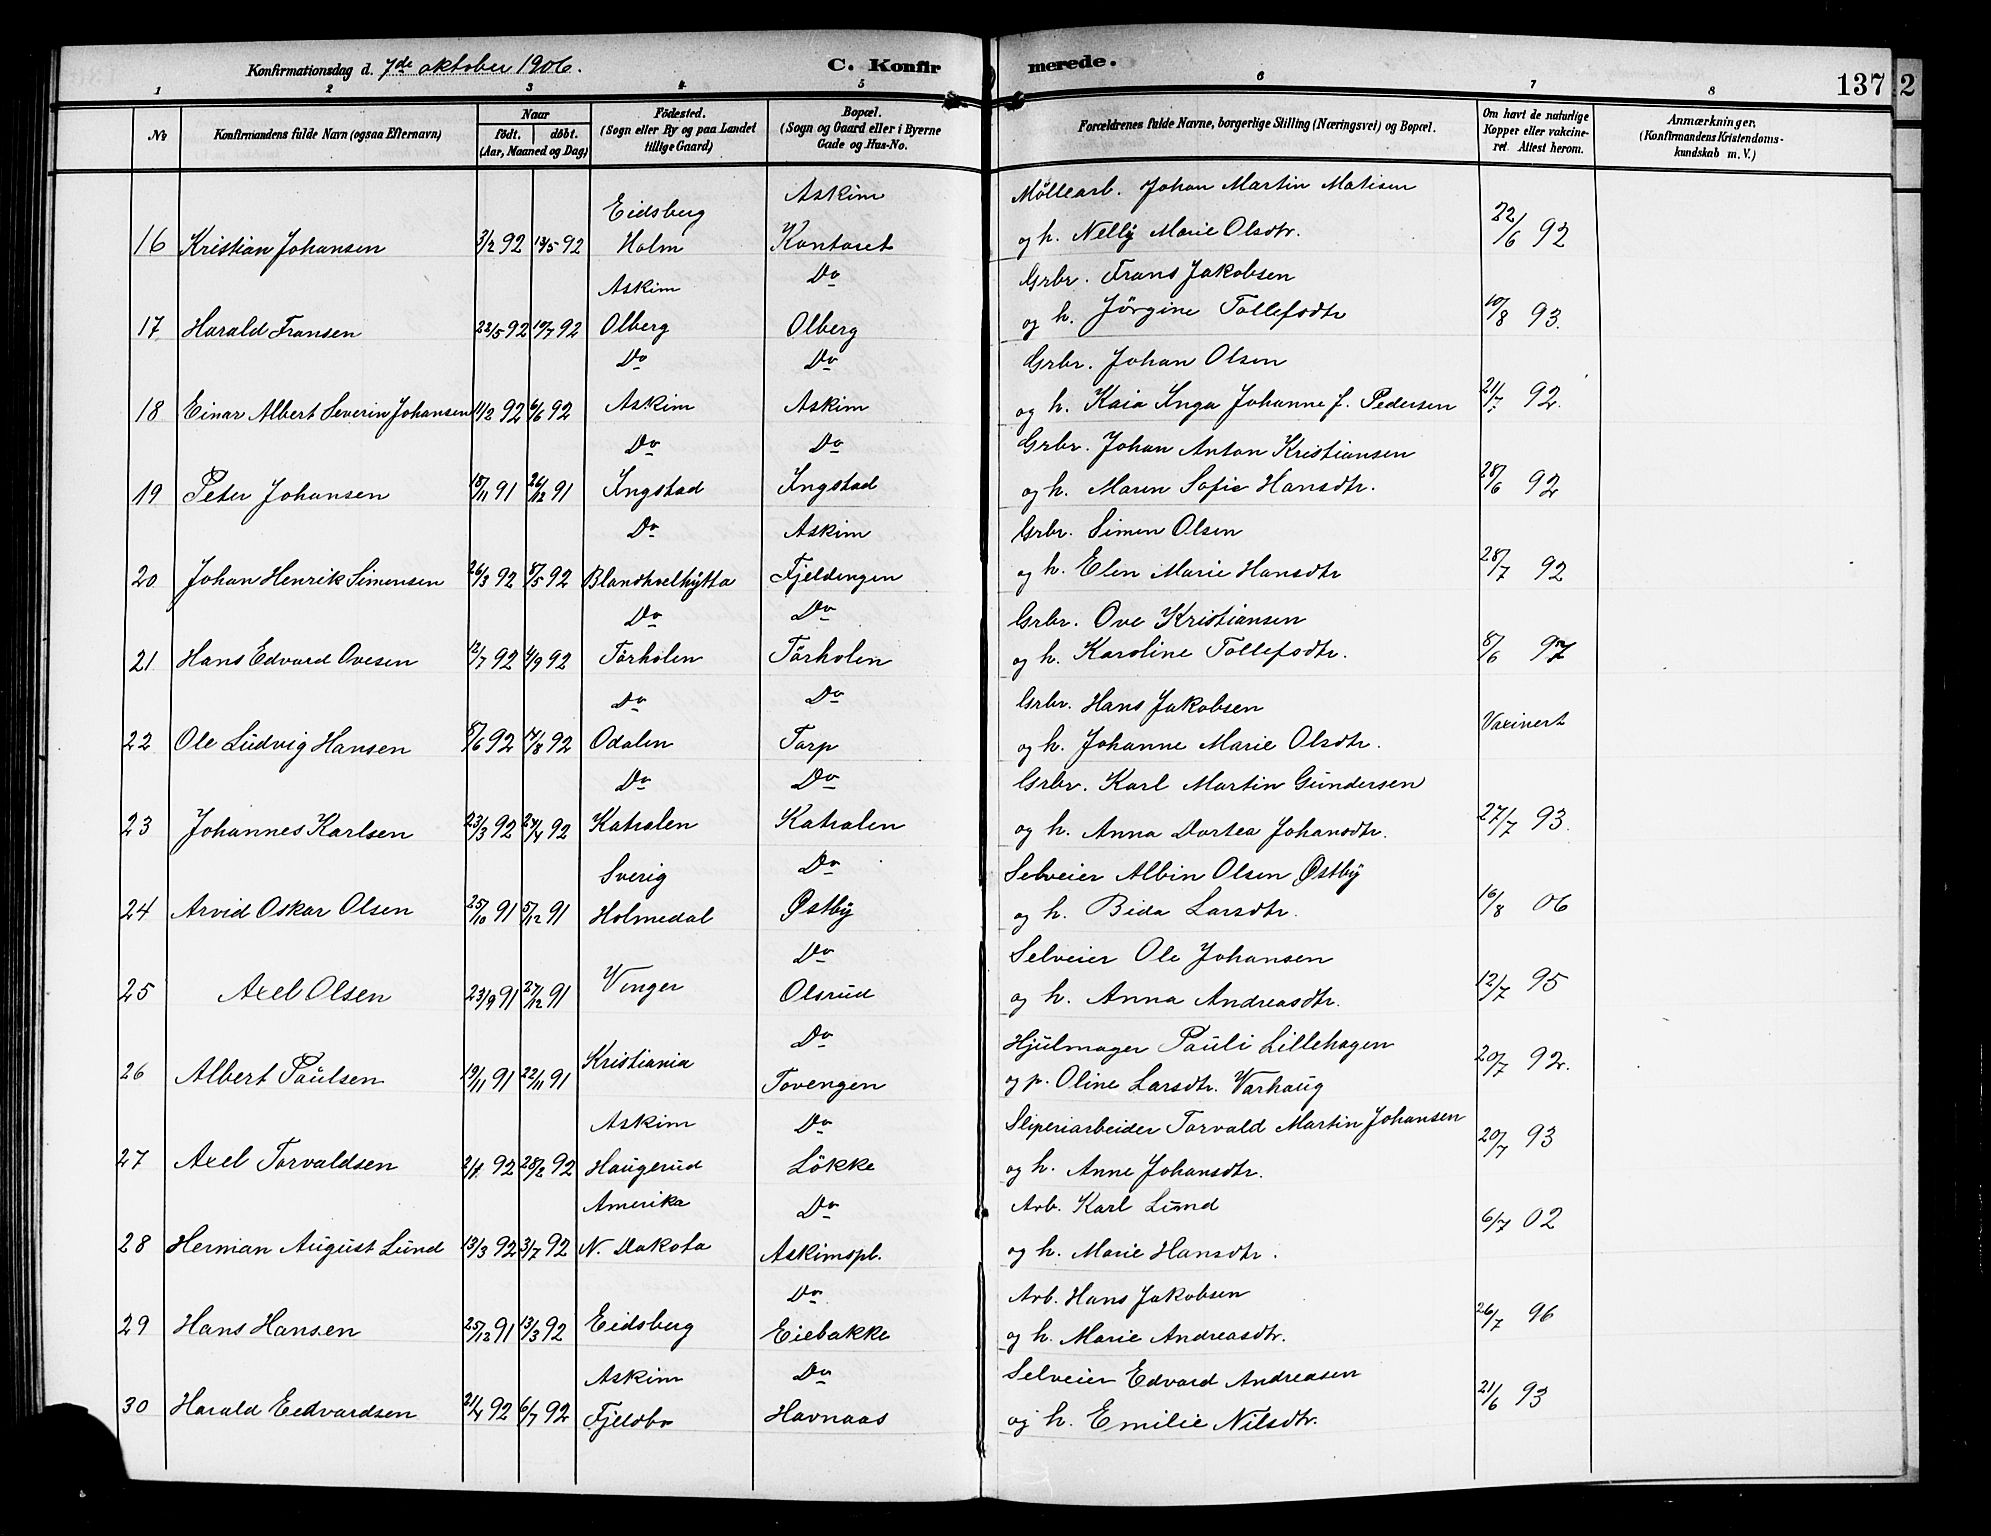 Konfirmationsdag d. 7de oktober 1906. C. Konfirmerede. 137 2
1 2 3 4 5 6 7 8
No Konfirmandens fulde Navn (ogsaa Efternavn) Naar født. døbt. (Aar, Maaned og Dag) Fødested. (Sogn eller By og paa Landet tillige Gaard) Bopæl. (Sogn og Gaard eller i Byerne Gade og Hus-No. Forældrenes fulde Navne, borgerlige Stilling (Næringsvei) og Bopæl. Om havt de naturlige Kopper eller vakcineret. Attest herom. Anmærkninger. (Konfirmandens Kristendomskundskab m. V.)
Eidsberg Askim Møllearb. Johan Martin Matisen
16 Kristian Johansen 3/2 92 13/5 92 Holm Kontoret og h. Nelly Marie Olsdtr. 22/6 92
Askim Do Grbr. Frans Jakobsen
17 Harald Fransen 22/5 92 10/7 92 Olberg Olberg og h. Jørgine Tollefsdtr 10/8 93.
Do Do Grbr. Johan Olsen
18 Einar Albert Severin Johansen 11/2 92 6/6 92 Askim Askim og h. Kaia Inga Johanne f. Pedersen 21/7 92.
Do Do Grbr. Johan Anton Kristiansen
19 Peter Johansen 18/11 91 26/12 91 Ingstad Ingstad og h. Maren Sofie Hansdtr. 28/6 92
Do Askim Grbr. Simen Olsen
20 Johan Henrik Simensen 26/3 92 8/5 92 Blandkvelhytta Fjeldengen og h. Elen Marie Hansdtr 28/7 92
Do Do Grbr. Ove Kristiansen
21 Hans Edvard Ovesen 12/7 92 4/9 92 Tørholen Tørholen og h. Karoline Tollefsdtr. 8/6 97
Do Do Grbr. Hans Jakobsen
22 Ole Ludvig Hansen 8/6 92 14/8 92 Odalen Torp og h. Johanne Marie Olsdtr. Vaxinert
Do Do Grbr. Karl Martin Gundersen
23 Johannes Karlsen 23/3 92 24/4 92 Katralen Katralen og h. Anna Dortea Johansdtr. 27/7 93.
Sverig Do Selveier Albin Olsen Østby
24 Arvid Oskar Olsen 25/10 91 5/12 91 Holmedal Østby og h. Bida Larsdtr. 16/8 06
Do Selveier Ole Johansen
25 Axel Olsen 23/9 91 27/12 91 Vinger Olsrud og h. Anna Andreasdtr. 12/7 95
Do Hjulmager Pauli Lillehagen
26 Albert Paulsen 19/11 91 22/11 91 Kristiania Tovengen og p. Oline Larsdtr. Varhaug 20/7 92.
Askim Do Sliperiarbeider Torvald Martin Johansen
27 Axel Torvaldsen 2/1 92 28/2 92 Haugerud Løkke og h. Anne Johansdtr. 20/7 93
Amerika Do Arb. Karl Lund
28 Herman August Lund 13/3 92 3/7 92 N. Dakota Askimspl. og h. Marie Hansdtr. 6/7 02
Do Arb. Hans Jakobsen
29 Hans Hansen 25/12 91 13/3 92 Eidsberg Eiebakke og h. Marie Andreasdtr. 26/7 96
Askim Do Selveier Edvard Andreasen
30 Harald Eedvardsen 21/4 92 6/7 92 Fjeldbo Havnaas og h. Emilie Nilsdtr. 21/6 93